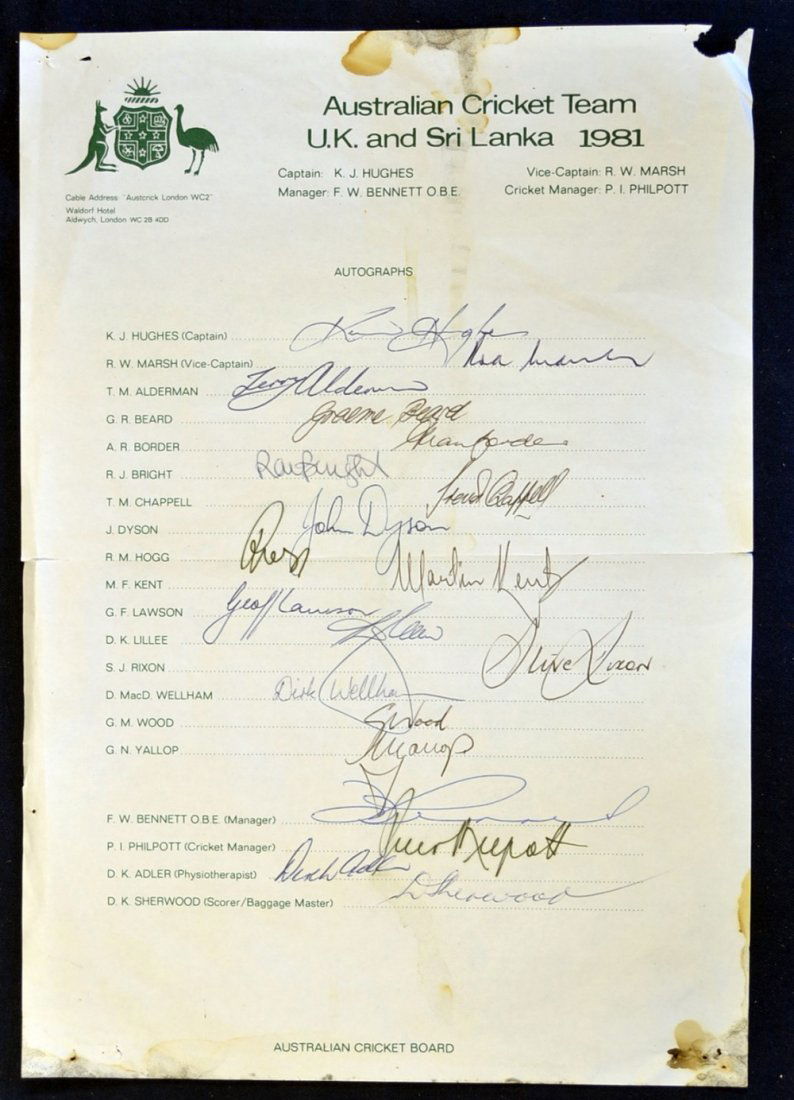 Australian Cricket Team
U.K. and Sri Lanka 1981
Captain: K. J. HUGHES Vice-Captain: R. W. MARSH
Manager: F. W. BENNETT O.B.E. Cricket Manager: P. I. PHILPOTT
Cable Address "Austcrick London WC2"
Waldorf Hotel
Aldwych, London WC 2B 4DD
AUTOGRAPHS
K. J. HUGHES (Captain) Kim Hughes
R. W. MARSH (Vice-Captain) Rod Marsh
T. M. ALDERMAN Terry Alderman
G. R. BEARD Graeme Beard
A. R. BORDER Allan Border
R. J. BRIGHT Ray Bright
T. M. CHAPPELL Trevor Chappell
J. DYSON John Dyson
R. M. HOGG
M. F. KENT Martin Kent
G. F. LAWSON Geoff Lawson
D. K. LILLEE
S. J. RIXON Steve Rixon
D. MacD. WELLHAM Dirk Wellham
G. M. WOOD G Wood
G. N. YALLOP
F. W. BENNETT O.B.E. (Manager)
P. I. PHILPOTT (Cricket Manager) Peter Philpott
D. K. ADLER (Physiotherapist)
D. K. SHERWOOD (Scorer/Baggage Master) D Sherwood
AUSTRALIAN CRICKET BOARD